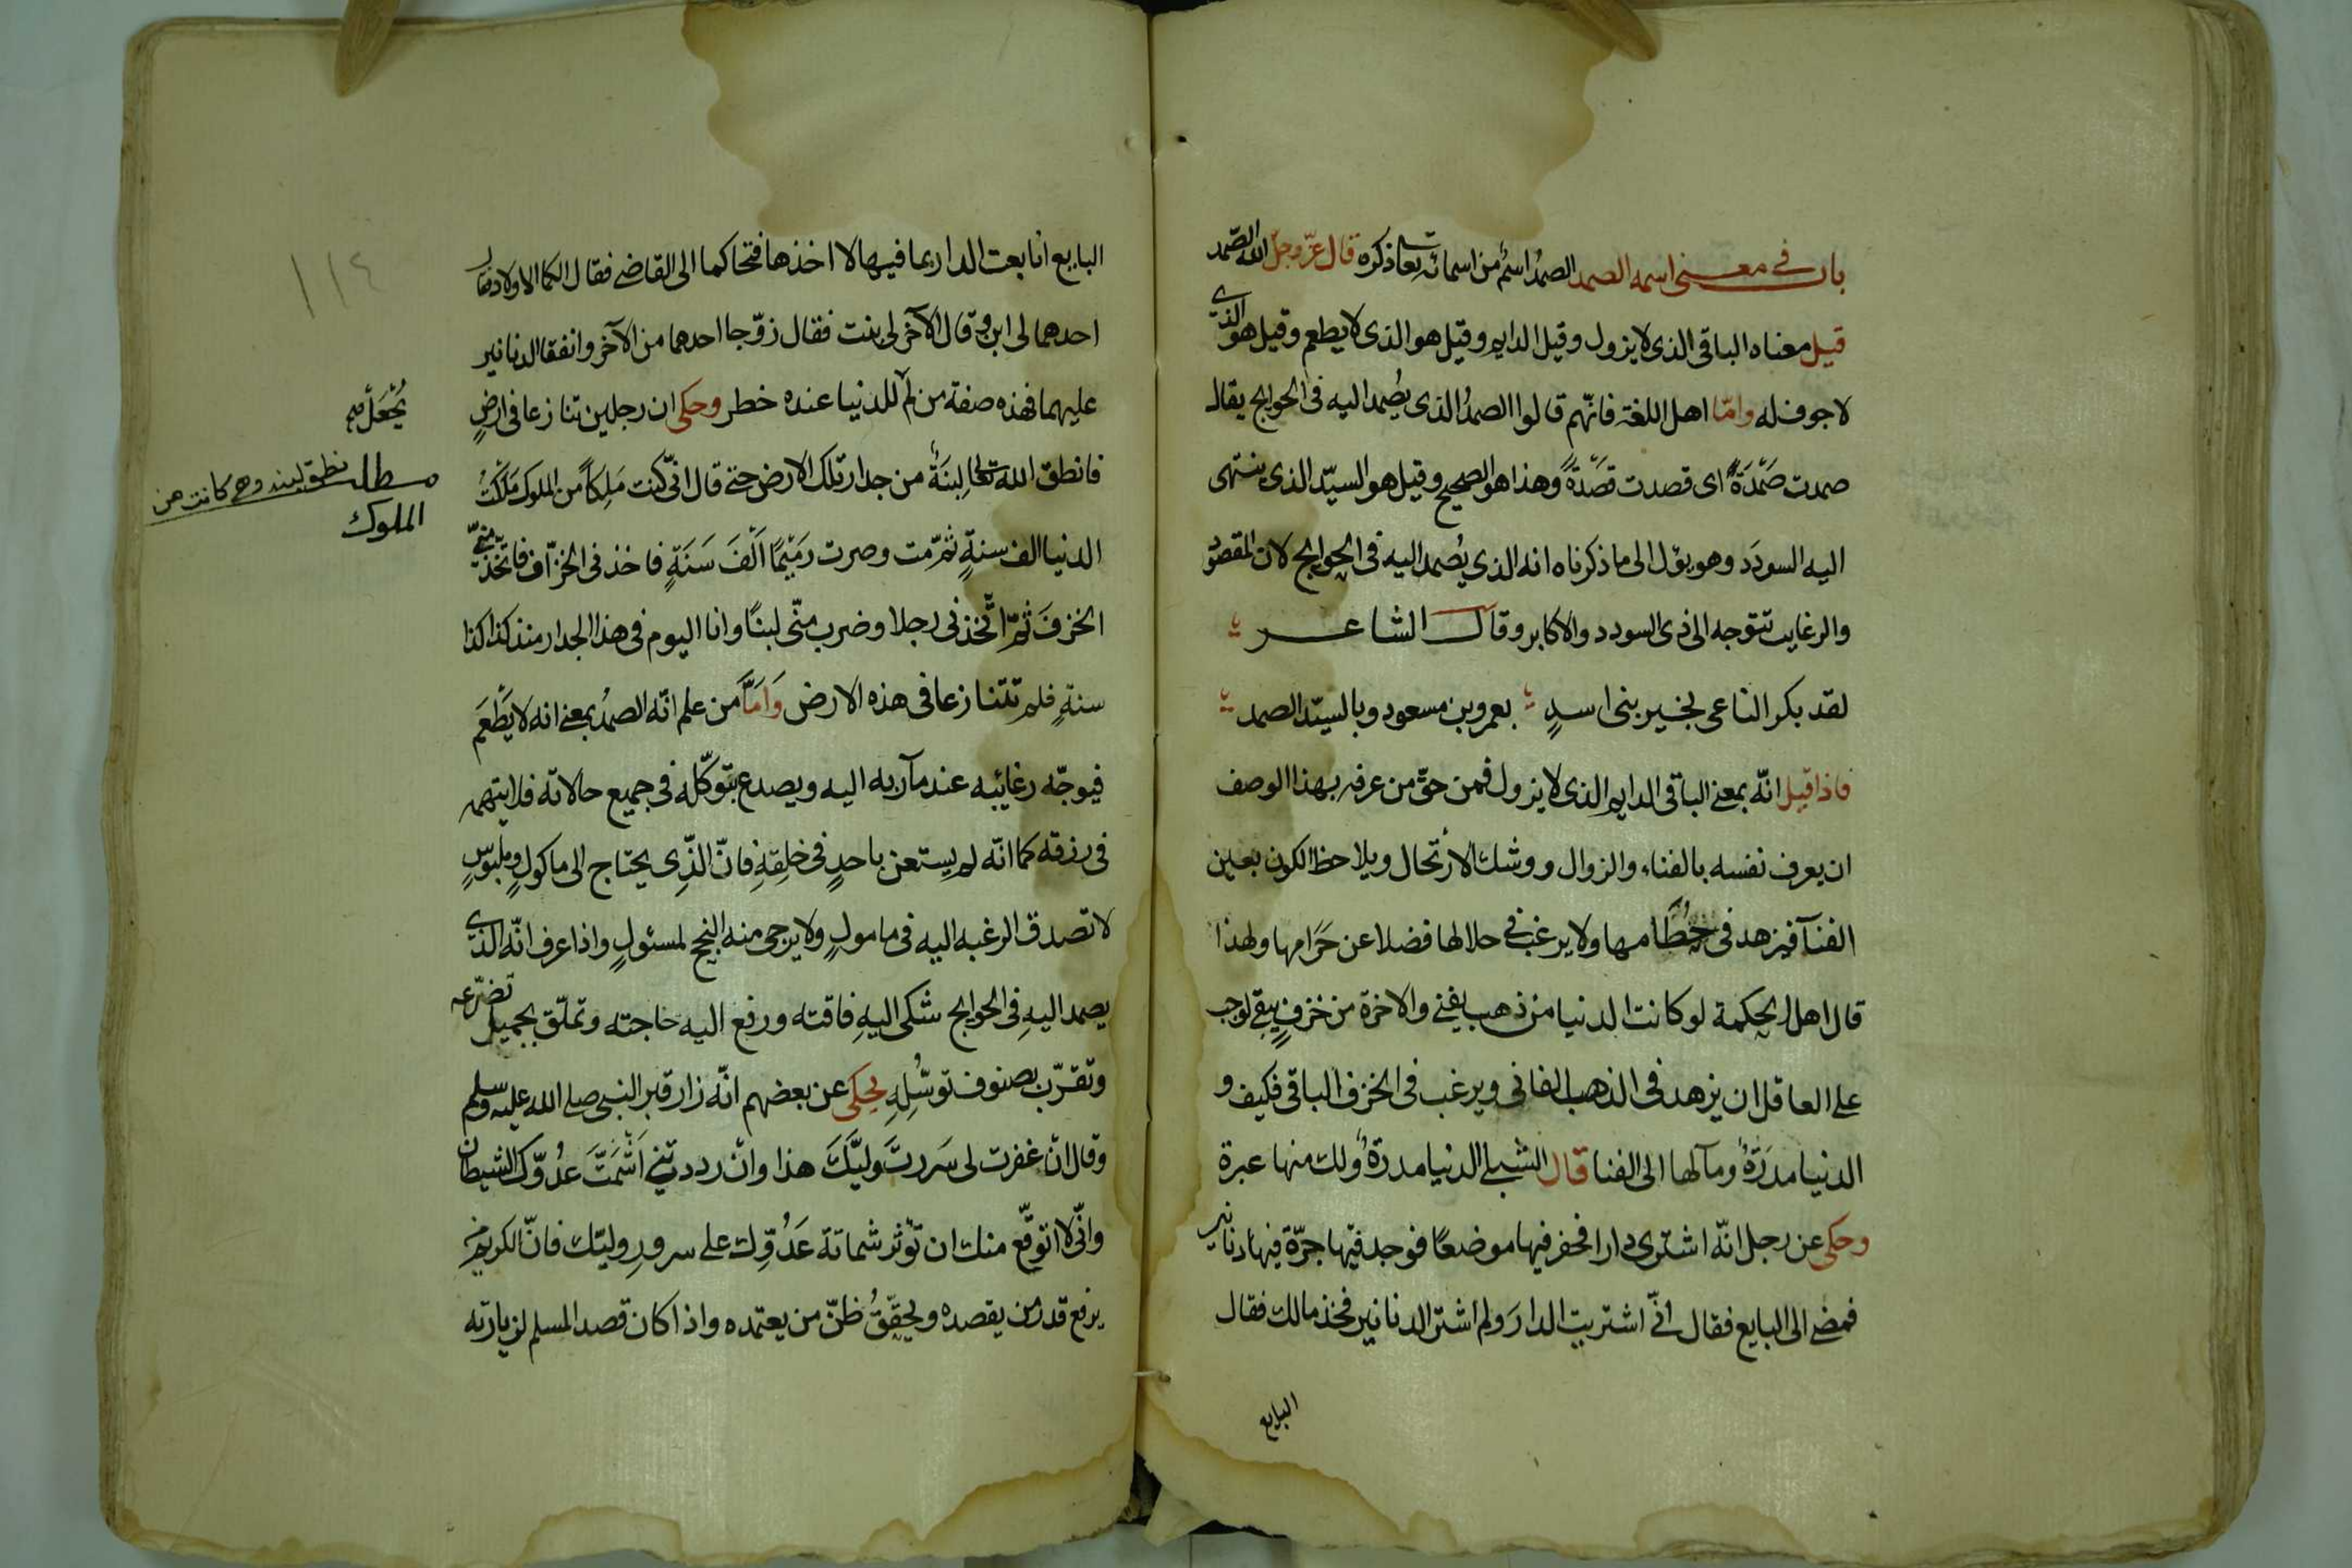 باب في معنى اسمه الصمد الصمدُ اسمٌ من اسمائه تعا ذكره قال عزّ وجلّ الله الصّمد
قيل معناه الباقى الذى لا يزول وقيل الدايم وقيل هو الذى لا يطعم وقيل هو الذي
لا جوف له وامّا اهل اللغة فانّهم قالوا الصمدُ الذى يُصمد اليه فى الحوايج يقال
صمدت صَمْدَةً اى قصدت قَصْدَةً وهذا هو الصحيح وقيل هو السيّد الذى ينتهى
اليه السودَد وهو يؤل الى ما ذكرناه انه الذي يُصمد اليه فى الحوايج لان المقصود
والرغايب تتوجه الى ذى السودد والاكابر وقال الشاعر
لقد بكر الناعى بخير بنى اسدٍ بعمرو بن مسعود وبالسيّد الصمد
فاذا قيل انّه بمعنى الباقى الدايم الذى لا يزول فمن حقّ من عرفه بهذا الوصف
ان يعرف نفسه بالفناء والزوال ووشك الارتحال ويلاحظ الكون بعين
الفنآ فيزهد فى حُطَامها ولا يرغب فى حلالها فضلا عن حَرَامها ولهذا
قال اهل الحكمة لو كانت الدنيا من ذهب يفنى والاخرة من خزفٍ يبقى لوجب
على العاقل ان يزهد فى الذهب الفانى ويرغب فى الخزف الباقى فكيف و
الدنيا مدَرَةٌ ومآلها الى الفنا قال الشبلى الدنيا مدرةٌ ولك منها عبرة
وحكى عن رجل انّه اشترى دارا فحفر فيها موضعًا فوجد فيها جرّة فيها دنانير
فمضى الى البايع فقال انّى اشتريت الدارَ ولم اشتر الدنانير فخذ مالك فقال
البايع
البايع انا بعت الدار بما فيها لا اخذها فتحاكما الى القاضى فقال الكما الاولاد فقال
احدهما لى ابن وقال الآخر لى بنت فقال زوّجا احدهما من الآخر وانفقا الدنانير
عليهما فهذه صفة من لم للدنيا عنده خطر وحكى ان رجلين تنازعا فى ارضٍ
فانطق الله تعالى لَبِنَةً من جدار تلك الارض حتى قال انّى كنت مَلِكًا من الملوك مَلَكْتُ
الدنيا الف سنةٍ ثمّ مت وصرت رَمِيْمًا اَلْفَ سَنَةٍ فاخذنى الخزّاف فاتّخذ منّى
الخزفَ ثمّ اتّخذنى رجلا وضرب منّى لبنًا وانا اليوم فى هذا الجدار منذ كذا كذا
سنةٍ فلم تتنازعا فى هذه الارض وَامَّا من علم انّه الصمدُ بمعنى انه لا يَطْعَم
فيوجّه رغائبه عند مآربه اليه ويصدع بتوكّله فى جميع حالاته فلا يتهمه
فى رزقه كما انّه لم يستعن باحدٍ فى خلقِهِ فانّ الذى يحتاج الى ماكولٍ وملبوسٍ
لا تصدق الرغبه اليه فى مامولٍ ولا يرجى منه النجح لمسئولٍ واذا عرف انّه الذى
يصمد اليهِ فى الحوايج شكى اليهِ فاقته ورفع اليه حاجته وتملّق بجميل تضرّعه
وتقرّب بصنوف توسُّلِهِ يحكى عن بعضهم انّه زار قبر النبى صلى الله عليه وسلم
وقال انْ غفرت لى سَررتَ وليَّكَ هذا وانْ رددتنى اَشْمَتَّ عدُوّك الشيطان
وانّى لا اتوقّع منك ان تؤثر شماتة عَدُوِّك على سرورِ وليّك فانّ الكريم من
يرفع قدر من يقصده ويحقّقُ ظنّ من يعتمده واذا كان قصد المسلم لزيارته
١١٤
مطلب نطق لبنه وهى كانت من
الملوك